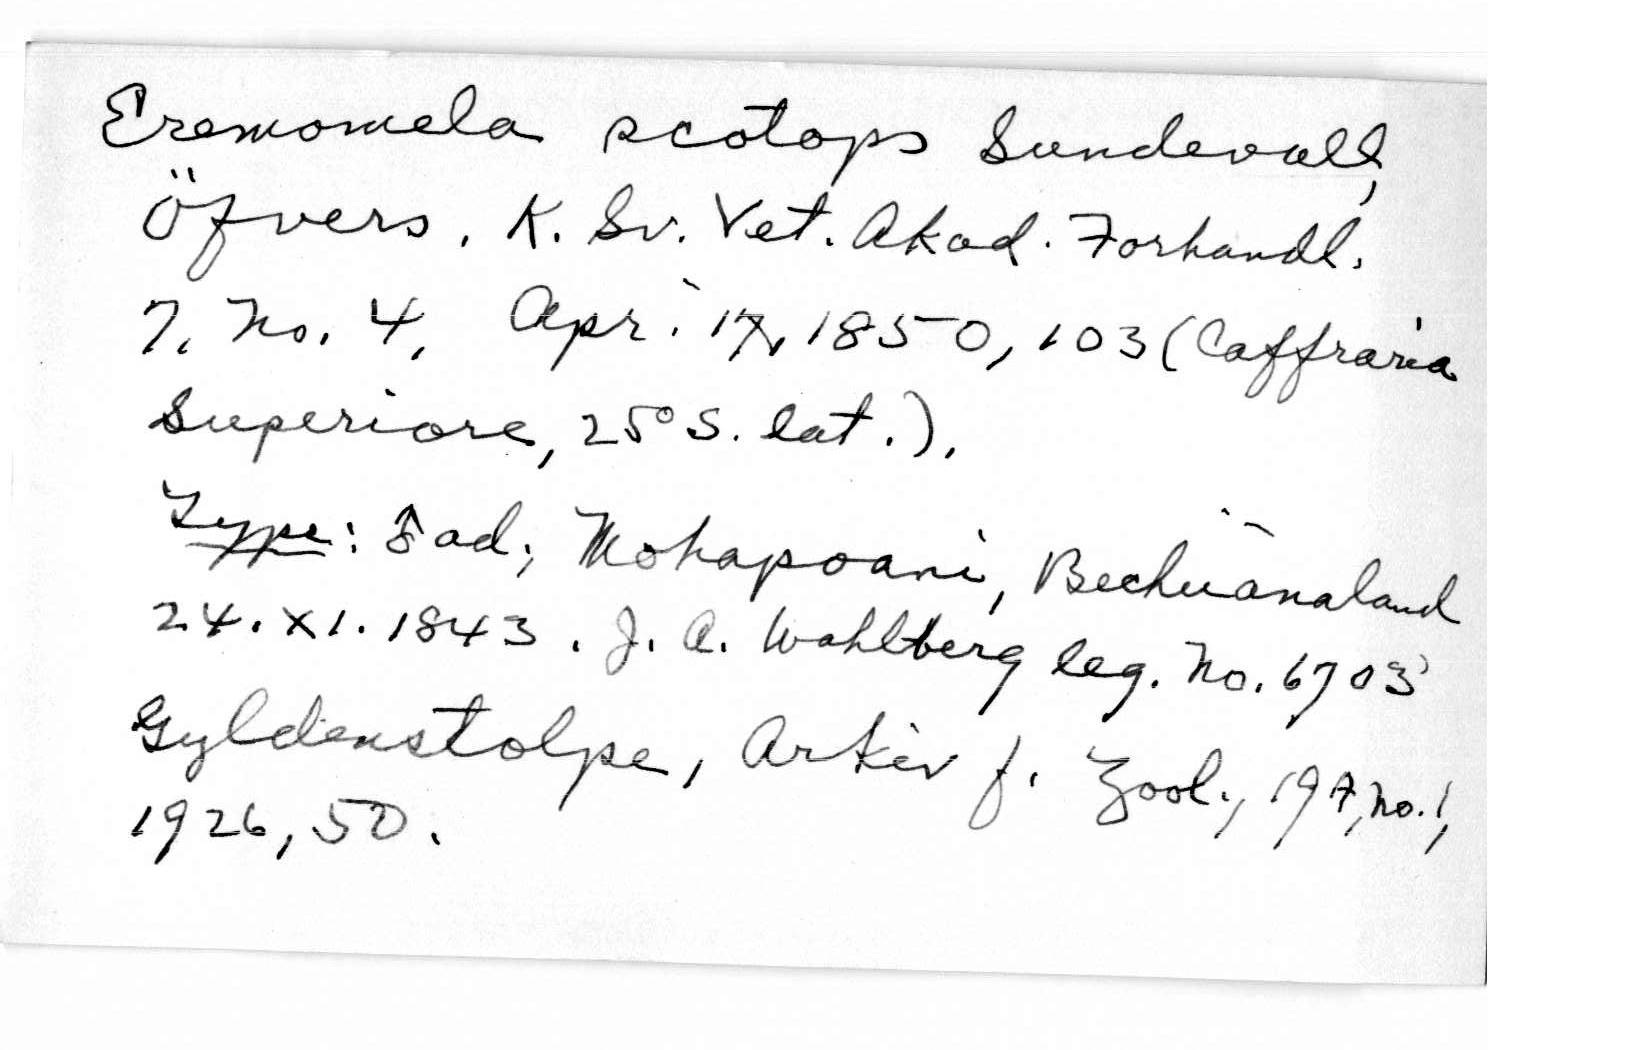 Eremomela scotops Sundevall,
Öfvers. K. Sv. Vet. Akad. Forhandl.
7, No. 4, Apr. 17, 1850, 103 (Caffraria
Superiore, 25° S. lat.).
Type: ♂ ad; Mohapoani, Bechuanaland
24. XI. 1843. J. A. Wahlberg leg. No. 6703
Gyldenstolpe, Arkiv f. Zool., 19A, No. 1,
1926, 50.